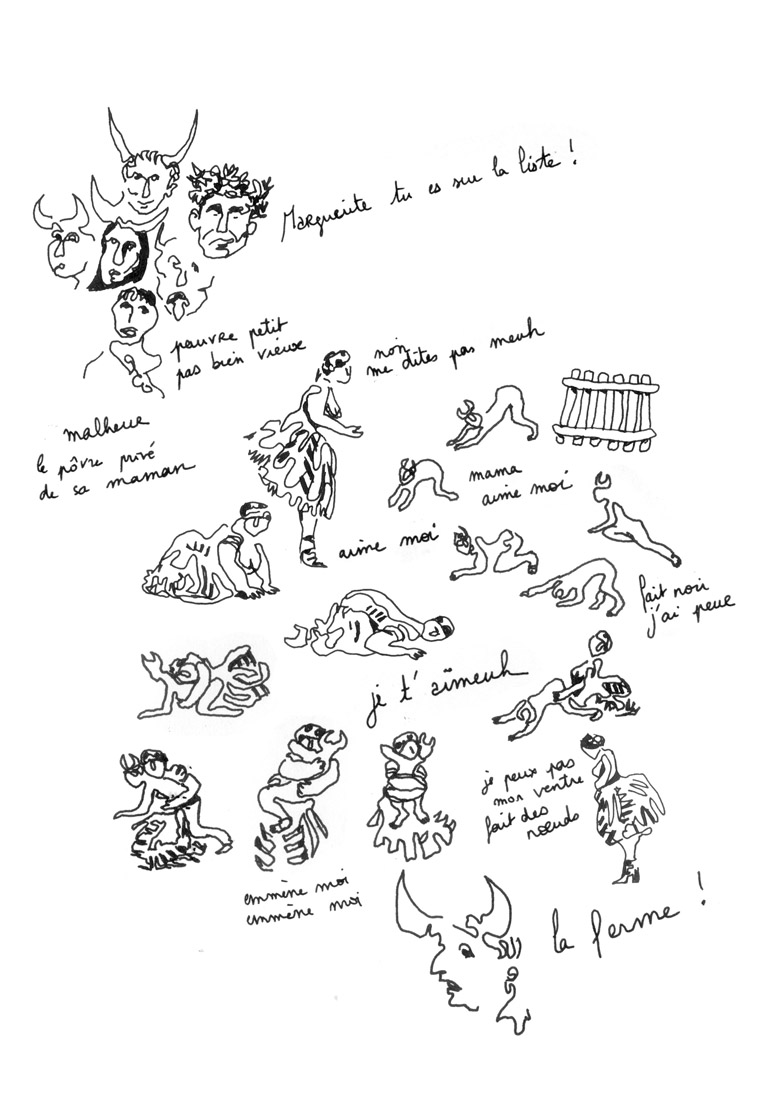 Marguerite tu es sur la liste !
pauvre petit
pas bien vieux
non
me dites pas meuh
malheur
le pôvre privé
de sa maman
mama
aime moi
aime moi
fait noir
j'ai peur
je t'aïmeuh
je peux pas
mon ventre
fait des
nœuds
emmène moi
emmène moi
la ferme !